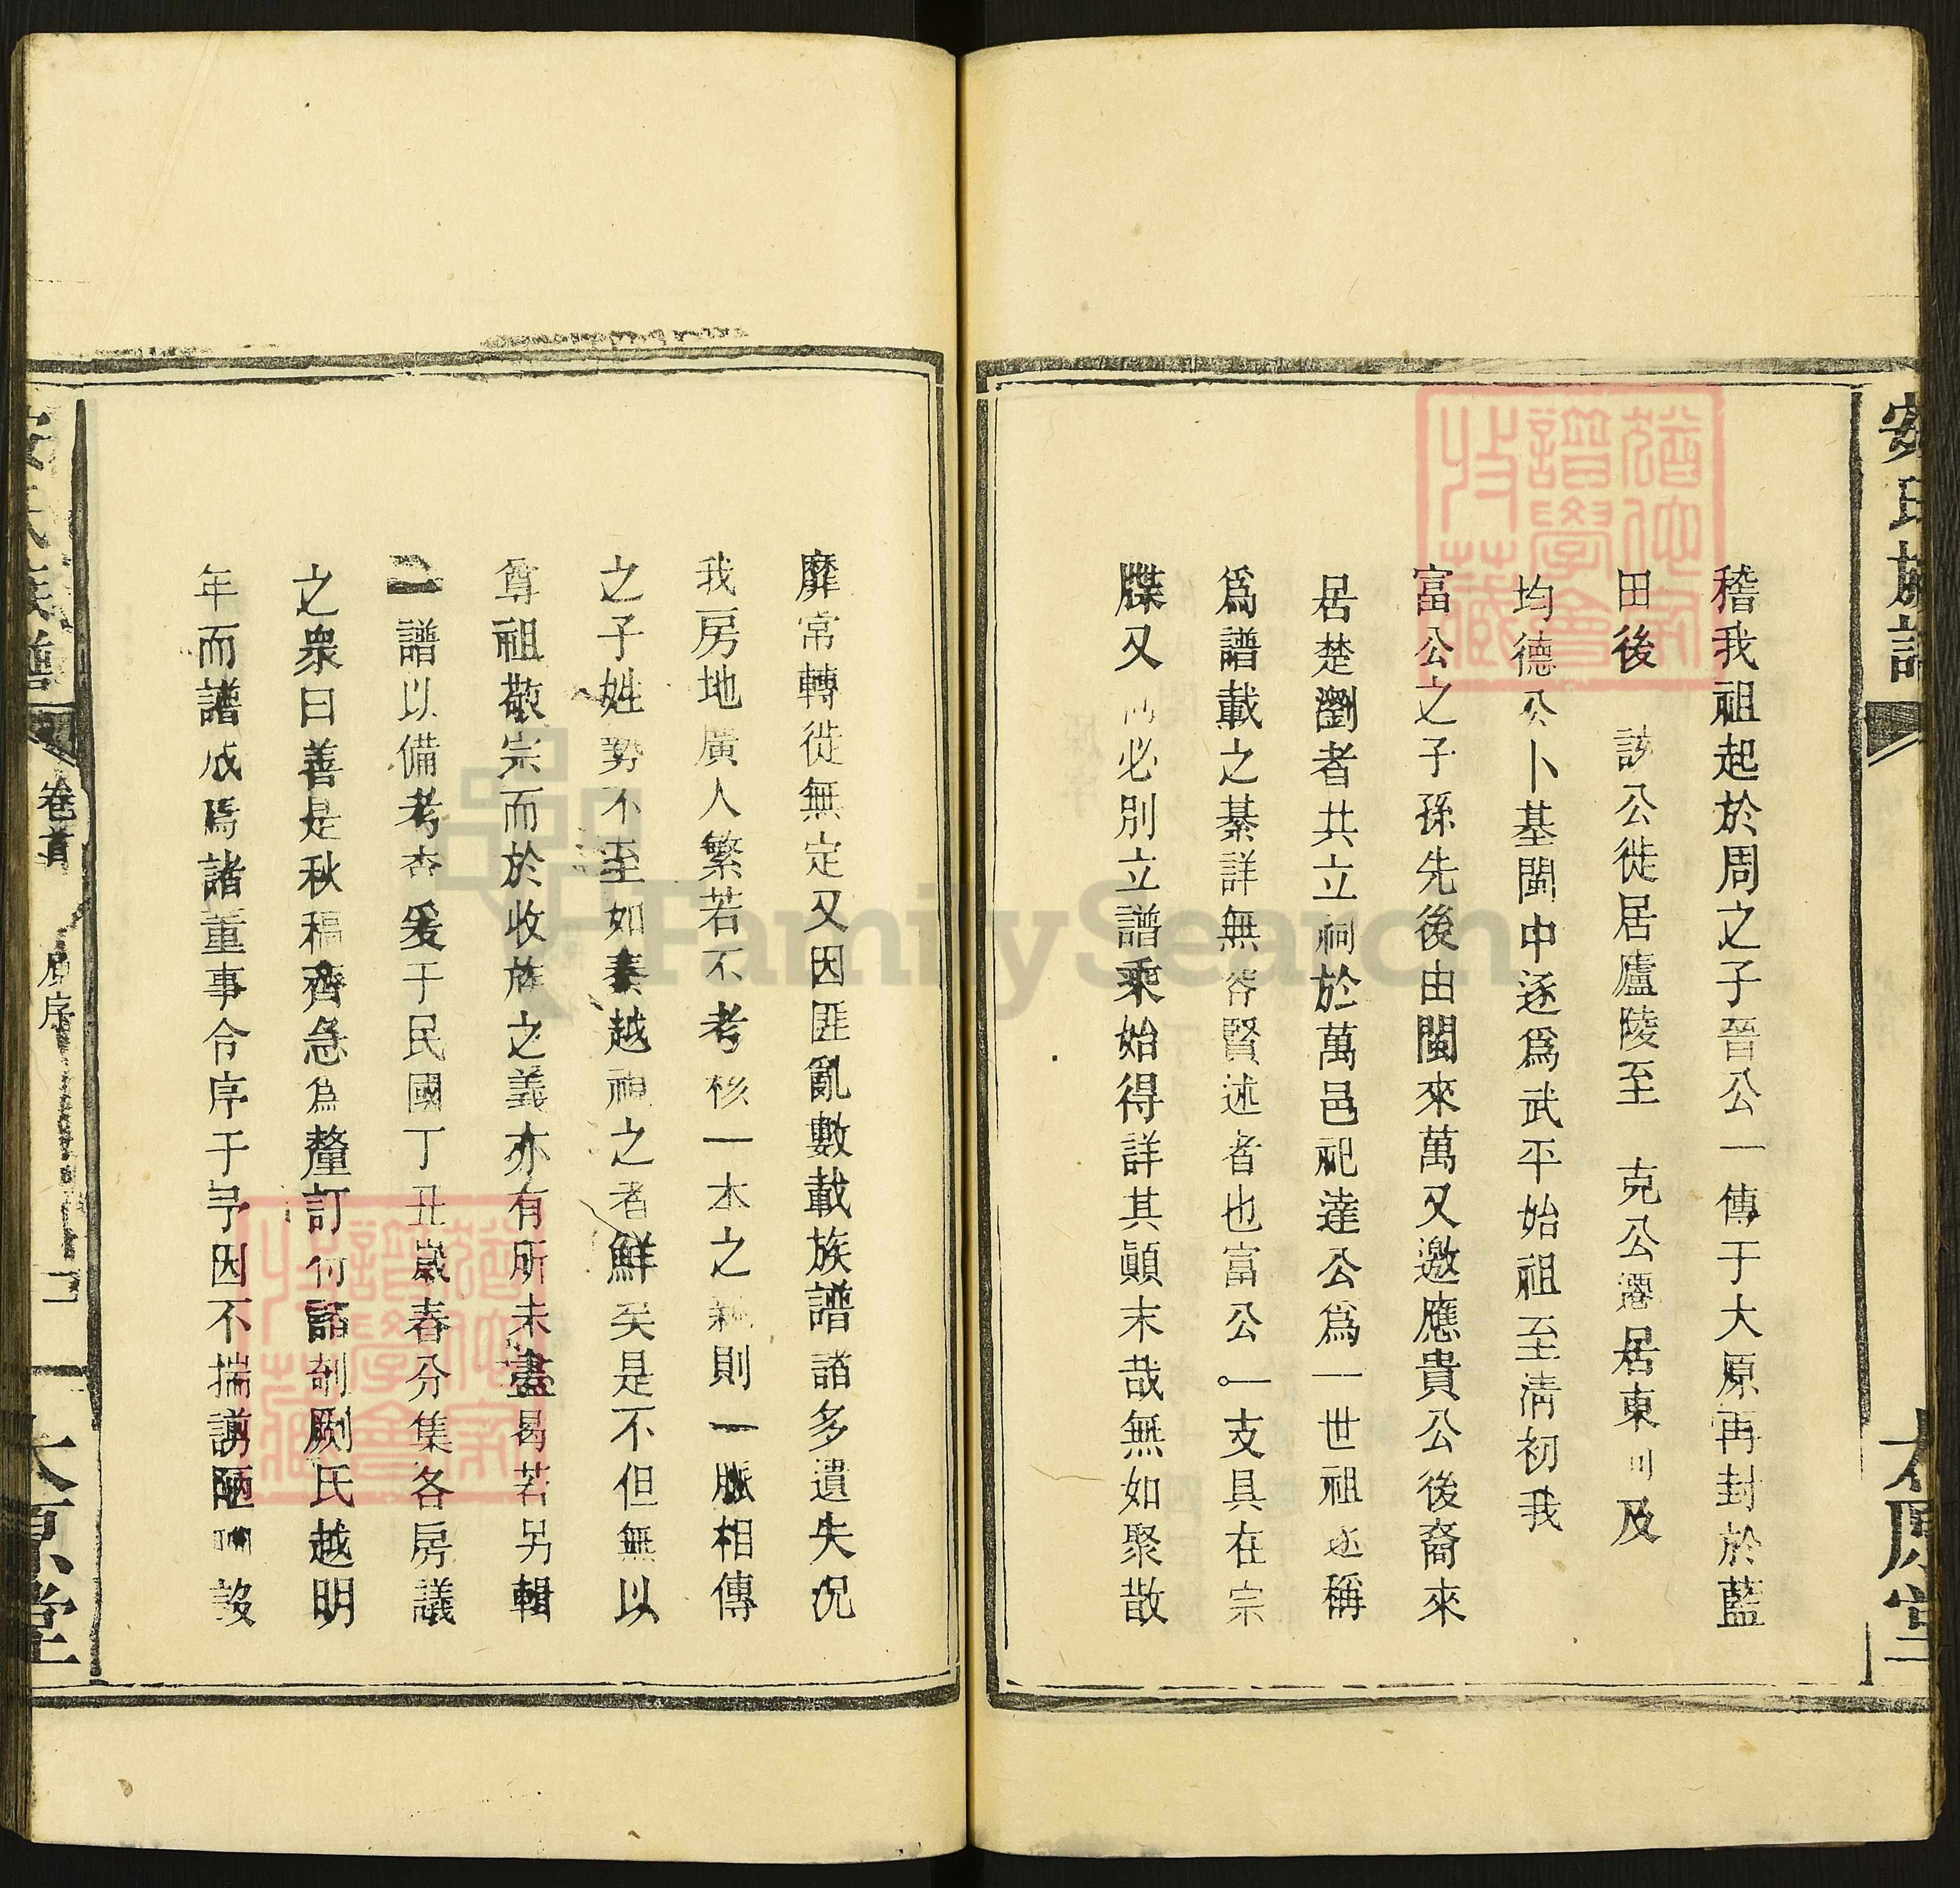 安氏族譜
太原堂
稽我祖起於周之子晉公一傳于大原再封於藍
田後 該公徙居廬陵至 克公遷居東川及
均德公卜基閩中逐爲武平始祖至淸初我
富公之子孫先後由閩來萬又邀應貴公後裔來
居楚瀏者共立祠於萬邑祀達公爲一世祖迄稱
爲譜載之綦詳無容賢述者也富公一支具在宗
牒又 必別立譜乘始得詳其顚末哉無如聚散
靡常轉徙無定又因匪亂數載族譜諸多遺失况
我房地廣人繁若不考核一本之親則一脈相傳
之子姓勢不至如秦越視之者鮮矣是不但無以
尊祖敬宗而於收族之義亦有所未盡曷若另輯
一譜以備考 爰于民國丁丑歲春分集各房議
之衆曰善是秋稿齊急爲釐訂付諸剞劂氏越明
年而譜成焉諸董事令序于予因不揣譾陋
安氏族譜
卷首
原序
二
太原堂
FamilySearch